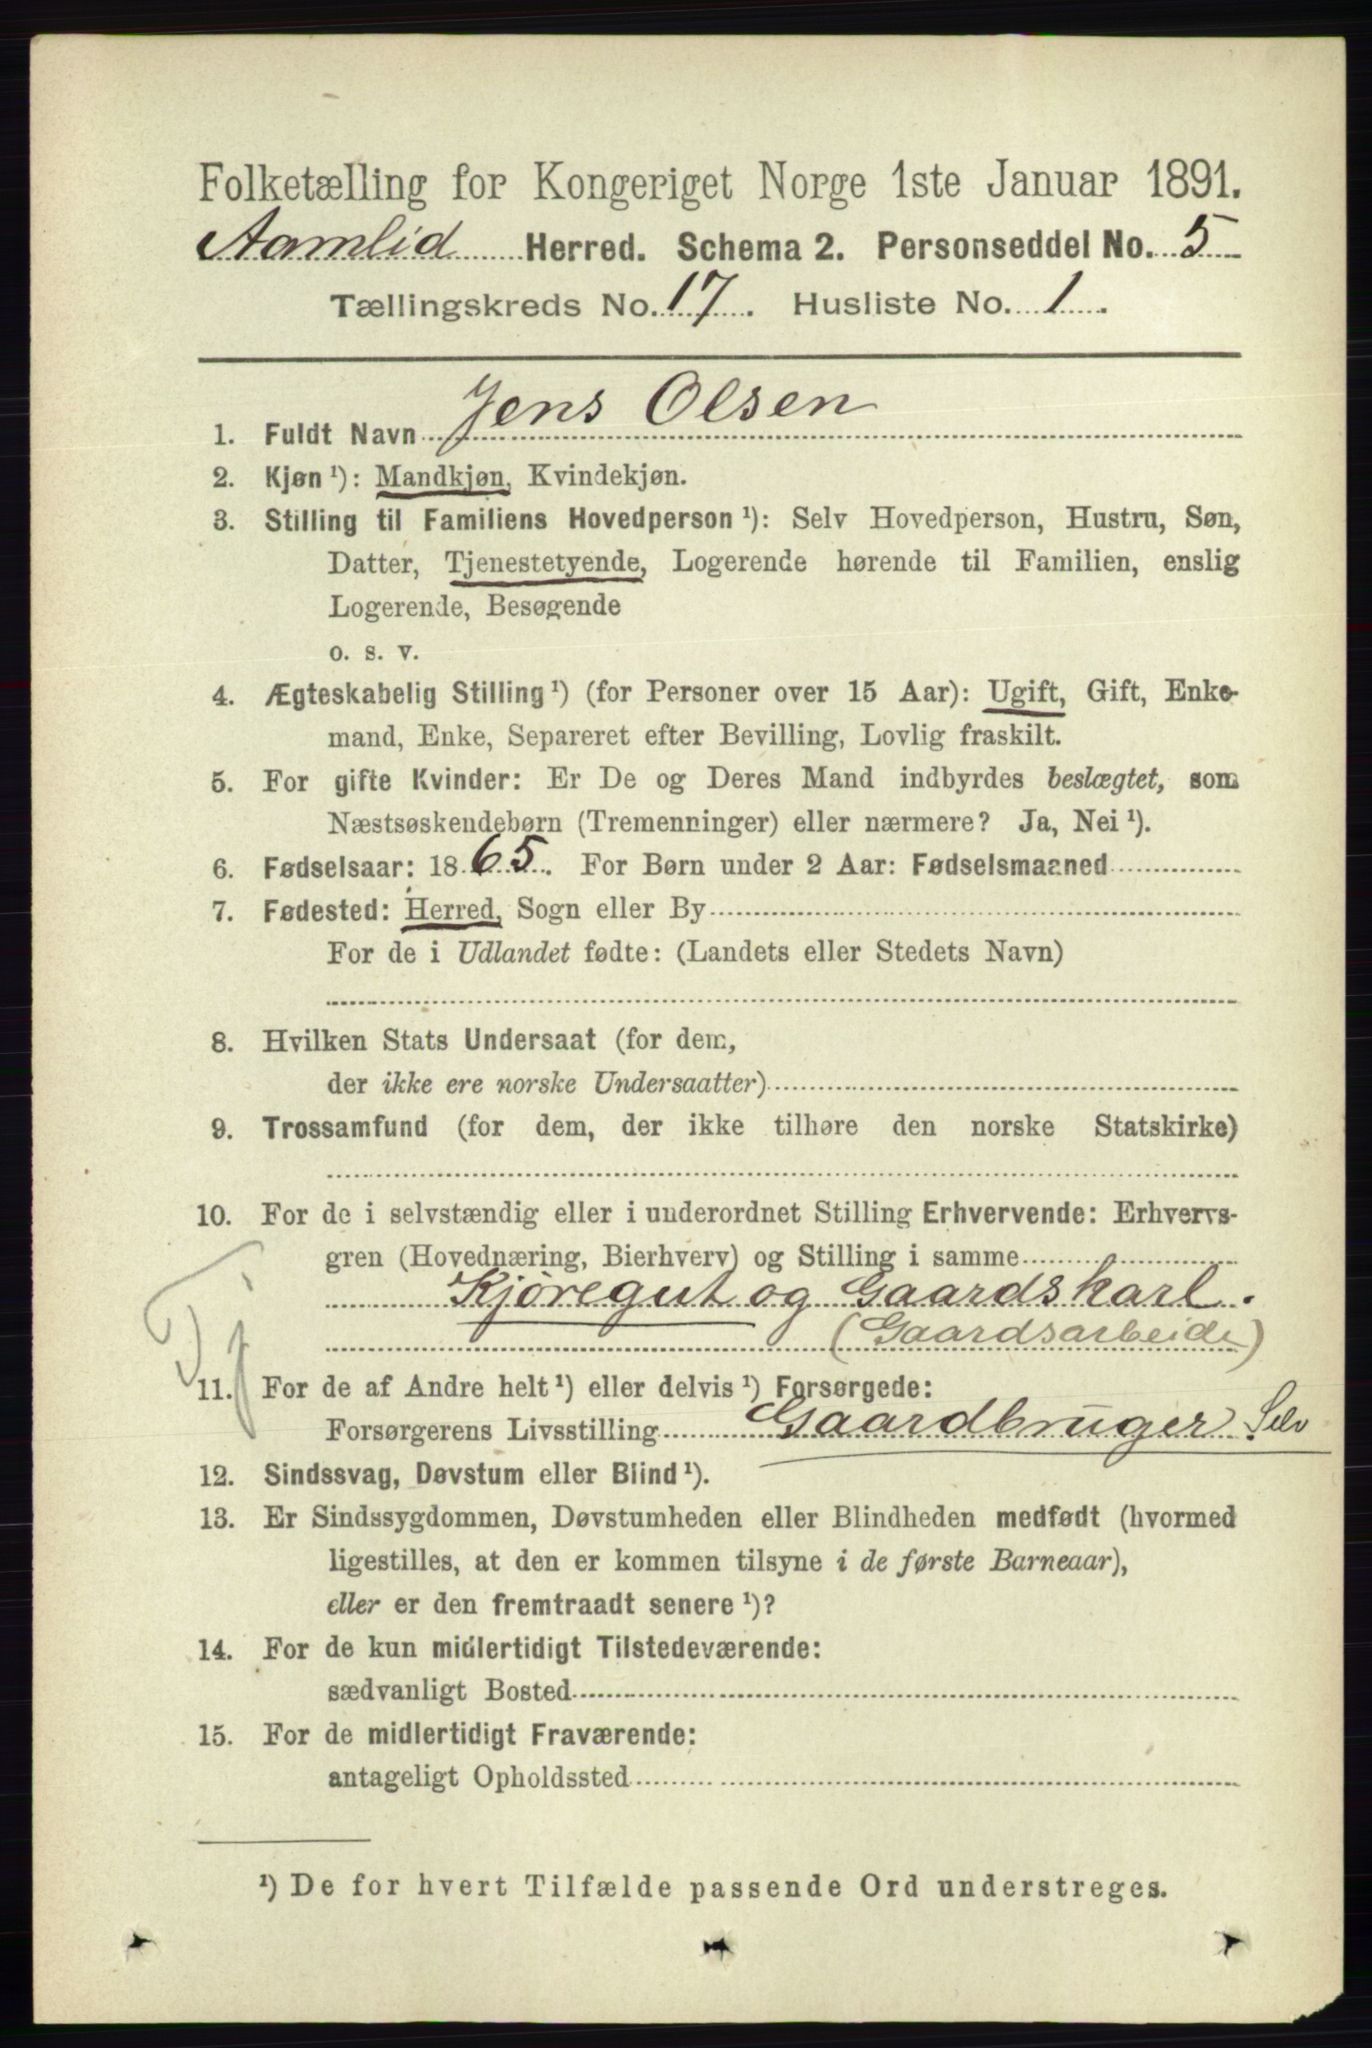 Folketælling for Kongeriget Norge 1ste Januar 1891.
Aamlid Herred. Schema 2. Personseddel No. 5
Tællingskreds No. 17. Husliste No. 1.
1. Fuldt Navn Jens Olsen
2. Kjøn ¹): Mandkjøn, Kvindekjøn.
3. Stilling til Familiens Hovedperson ¹): Selv Hovedperson, Hustru, Søn,
Datter, Tjenestetyende, Logerende hørende til Familien, enslig
Logerende, Besøgende
o. s. v.
4. Ægteskabelig Stilling ¹) (for Personer over 15 Aar): Ugift, Gift, Enke-
mand, Enke, Separeret efter Bevilling, Lovlig fraskilt.
5. For gifte Kvinder: Er De og Deres Mand indbyrdes beslægtet, som
Næstsøskendebørn (Tremenninger) eller nærmere? Ja, Nei ¹).
6. Fødselsaar: 1865. For Børn under 2 Aar: Fødselsmaaned
7. Fødested: Herred, Sogn eller By
For de i Udlandet fødte: (Landets eller Stedets Navn)
8. Hvilken Stats Undersaat (for dem,
der ikke ere norske Undersaatter)
9. Trossamfund (for dem, der ikke tilhøre den norske Statskirke)
10. For de i selvstændig eller i underordnet Stilling Erhvervende: Erhvervs-
gren (Hovednæring, Bierhverv) og Stilling i samme
Kjøregut og Gaardskarl.
(Gaardsarbeide)
Tj
11. For de af Andre helt ¹) eller delvis ¹) Forsørgede:
Forsørgerens Livsstilling Gaardbruger Selv
12. Sindssvag, Døvstum eller Blind ¹).
13. Er Sindssygdommen, Døvstumheden eller Blindheden medfødt (hvormed
ligestilles, at den er kommen tilsyne i de første Barneaar),
eller er den fremtraadt senere ¹)?
14. For de kun midlertidigt Tilstedeværende:
sædvanligt Bosted
15. For de midlertidigt Fraværende:
antageligt Opholdssted
¹) De for hvert Tilfælde passende Ord understreges.